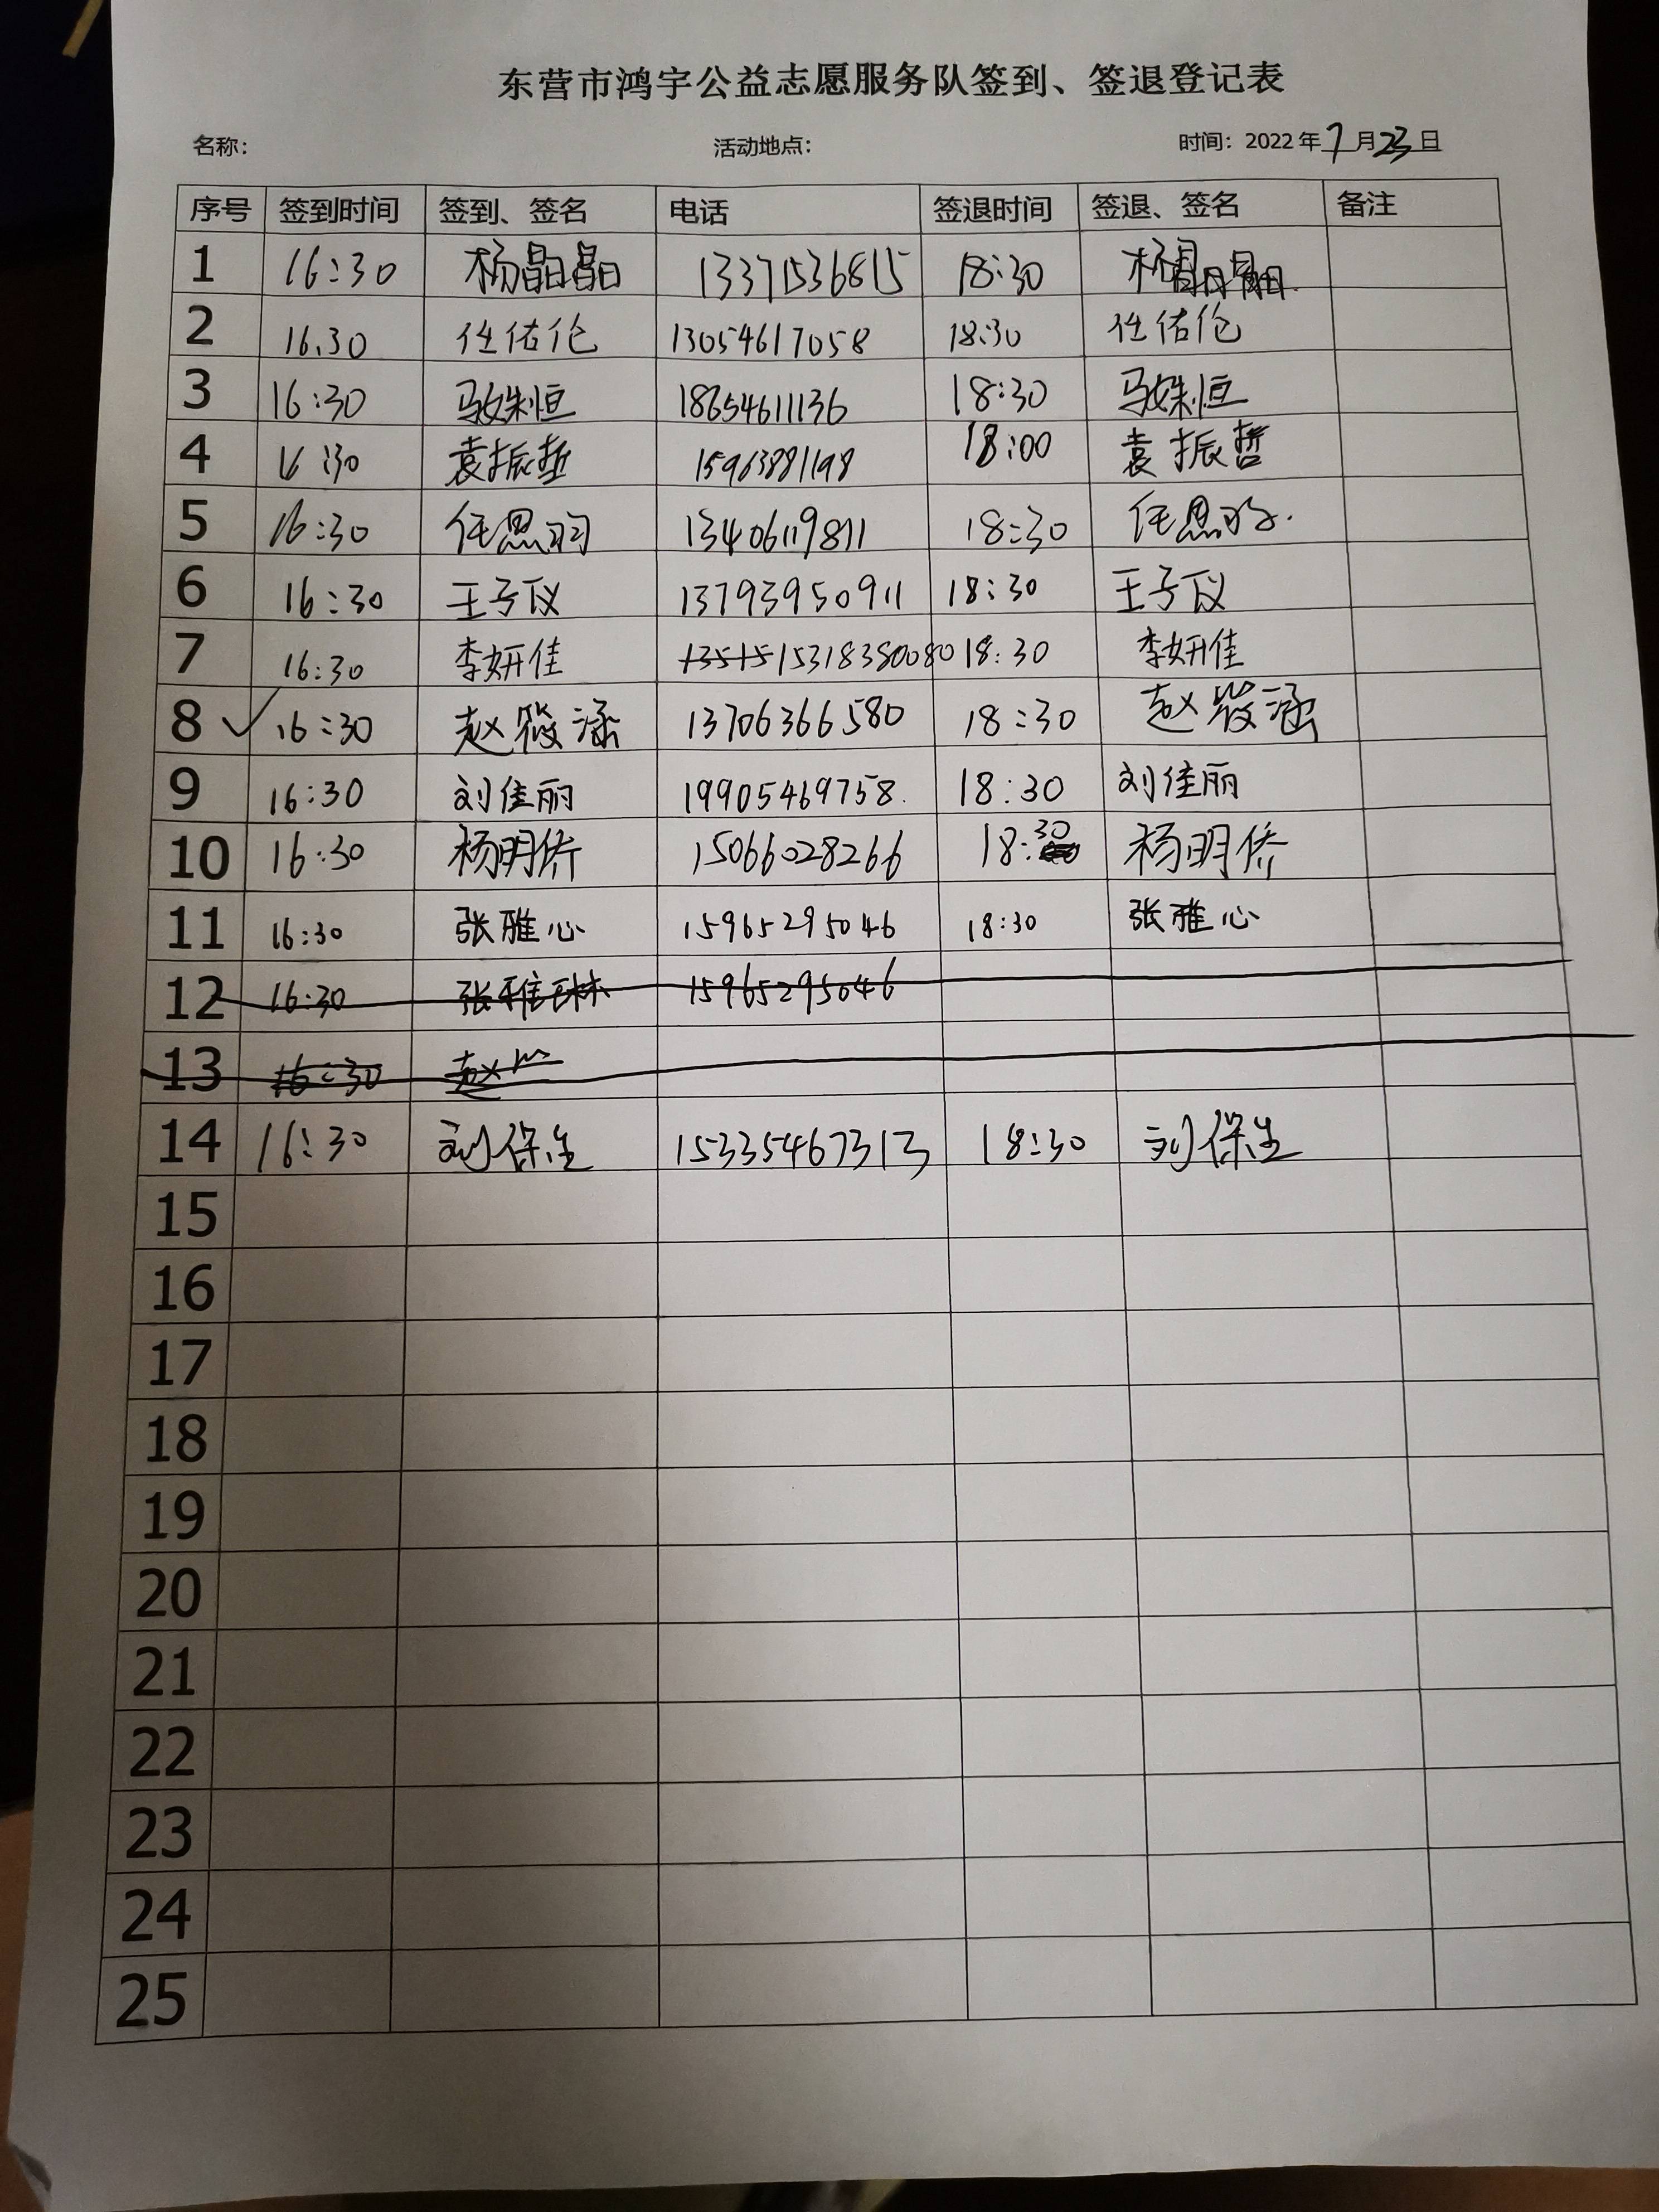 东营市鸿宇公益志愿服务队签到、签退登记表
名称: 活动地点: 时间: 2022年7月23日
序号 签到时间 签到、签名 电话 签退时间 签退、签名 备注
1 16:30 杨晶晶 13371536815 18:30 杨晶晶
2 16.30 任佑伦 13054617058 18:30 任佑伦
3 16:30 马姝恒 18654611136 18:30 马姝恒
4 16:30 袁振哲 15963881198 18:00 袁振哲
5 16:30 任恩羽 13406119811 18:30 任恩羽
6 16:30 王子仪 13793950911 18:30 王子仪
7 16:30 李妍佳 13515 15318380080 18:30 李妍佳
8 ✓ 16:30 赵筱涵 13706366580 18:30 赵筱涵
9 16:30 刘佳丽 19905469758. 18:30 刘佳丽
10 16:30 杨明侨 15066028266 18:30 杨明侨
11 16:30 张雅心 15965295046 18:30 张雅心
12 16:30 张雅琳 15965295046
13 16:30 赵
14 16:30 刘保生 15335467313 18:30 刘保生
15
16
17
18
19
20
21
22
23
24
25